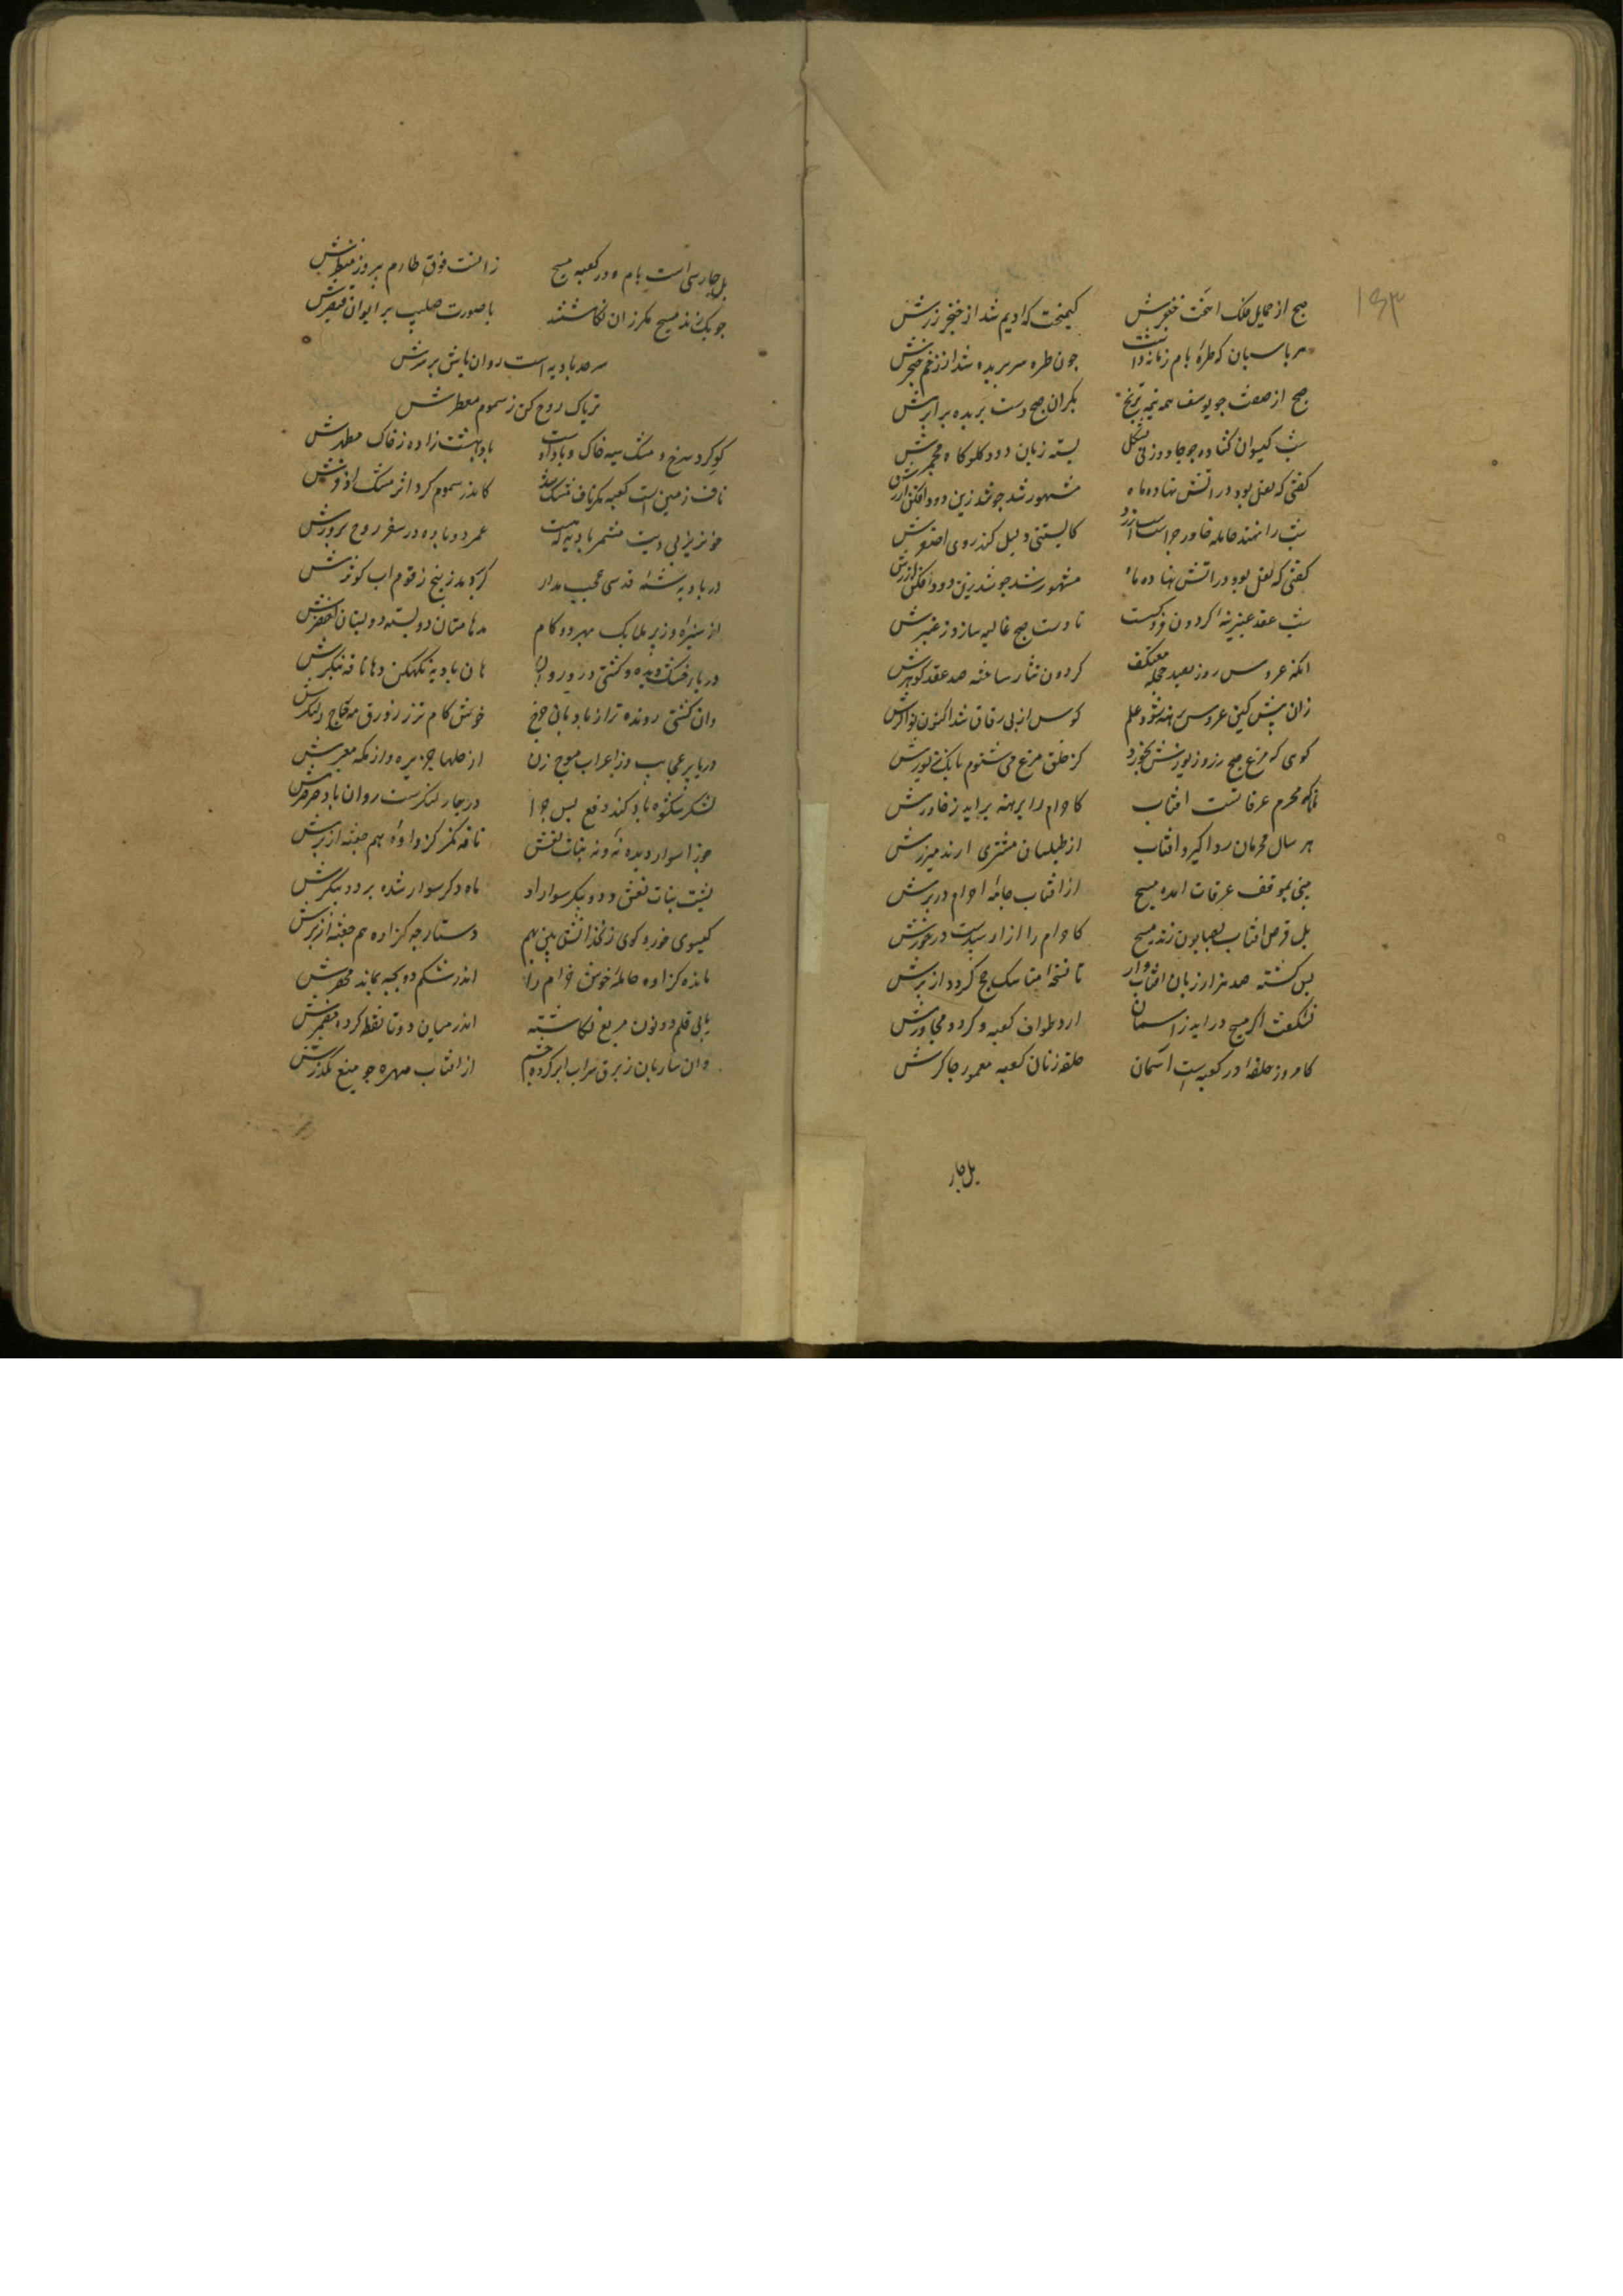 ۱۵۳
صبح از حمایل فلک اهخت خنجرش کیمخت که ادیم شد از خنجر زرش
هر پاسبان که طرهٔ بام زمانه داشت جون طره سر بریده شد از زخم خنجرش
صبح از صفت جو یوسف و مه نیمه ترنج بکران صبح دست بریده برابرش
شب کیسوان کشاده جو جادو زنی بشکل بسته زبان دود کلو کاه مجمرش
کفتی که نعل بود در اتش نهاده ماه مشهور شد جو شد زن دود افکن از برش
شب را نهند حامله خاور جراست زرد کابستنی دلیل کند روی اصفرش
کفتی که نعل بود در اتش نهاده ماه مشهور شد جو شد زن دود افکن از برش
شب عقد عنبرینهٔ کردون فرو کست تا دست صبح غالیه سازد ز عنبرش
انک عروس روز بس حجله معتکف کردون نثار ساخته صد عقد کوهرش
زان پیش کین عروس برهنه شود علم کوس از پی زفاف شد اکنون نواکرش
کوی که مرغ صبح زر و زیورش بخورد کز حلق مرغ می شنوم بانک زیورش
مانا که محرم عرفاتست افتاب کاحرام را برهنه براید ز خاورش
هر سال محرمان ردا کیرد افتاب از طیلسان مشتری ارند میزرش
بینی بموقف عرفات امده مسیح از افتاب جامهٔ احرام در برش
بل قرص افتاب بصابون زند مسیح کاحرام را ازار سپیدست در خورش
بس کشته صد هزار زبان افتاب وار تا نسخهٔ مناسک حج کردد از برش
نشکفت اکر مسیح دراید ز اسمان ارد طواف کعبه و کردد مجاورش
کامروز حلقهٔ در کعبه است اسمان حلقه زنان کعبه معمور جاکرش
بل جار
بل حارسی است بام و در کعبه مسیح زانست فوق طارم بیروزه منظرش
جوبک زند مسیح مکر زان نکاشتند با صورت صلیب بر ایوان قیصرش
سرحد بادیه است روان باش بر سرش
تریاک روح کن ز سموم معطرش
کوکرد سرخ و مشک سیه خاک و باد اوست باد بهشت زاده ز خاک مطهرش
ناف زمین است کعبه مکر ناف مشک شد کاندر سموم کرد اثر مشک اذفرش
خونریز بی دیت مشمر بادیه که هست عمر دوباره در سفر روح پرورش
در بادیه ز شمهٔ قدسی عجب مدار کر بردمد ز بیخ زقوم اب کوثرش
از سبزه و ز پر ملایک بهر دو کام مدهامتان دو بسته دو بستان اخضرش
دریاء خشک دیده و کشتی درو روان هان بادیه نکه کن و هان ناقه بنکرش
وان کشتی رونده تر از بادبان جرخ خوش کام تر ز زورق مه جاج لنکرش
دریا پر عجایب وز اعراب موج زن از حلها جزیره و از مکه معبرش
لشکر شکوه باد کند دفع پس جرا در جار لنکرست روان باد صرصرش
جوزا سوار دیده نهٔ بر بنات نعش ناقه نکر کژاوه و هم جفته از برش
پشت بنات نعش و دو پیکر سوار او ماه دکر سوار شده بر دو پیکرش
کیسوی حور و کوی زنخدانش بین بهم دستارجه کژاوه و هم جفته از برش
ماند کژاوه حاملهٔ خوش خرام را اندر شکم دو بجه بماند محقرش
یا بی قلم دو نون مربع نکاشته اندر میان دو تا نقطه کرده مضمرش
وان ساربان ز برق سراب ابر کرده جشم از افتاب جهره جو میغ مکدرش